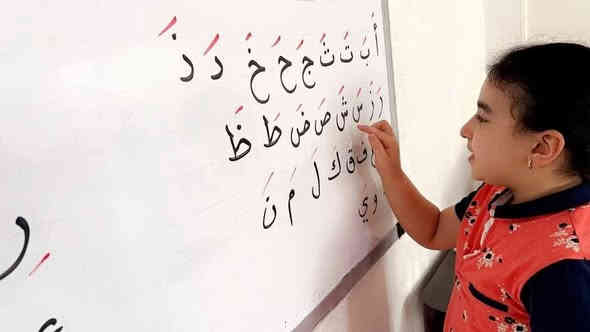 أَ بَ تَ ثَ جَ حَ خَ دَ ذَ
رَ زَ سَ شَ صَ ضَ طَ ظَ
فَ قَ كَ لَ مَ نَ
وَ يَ